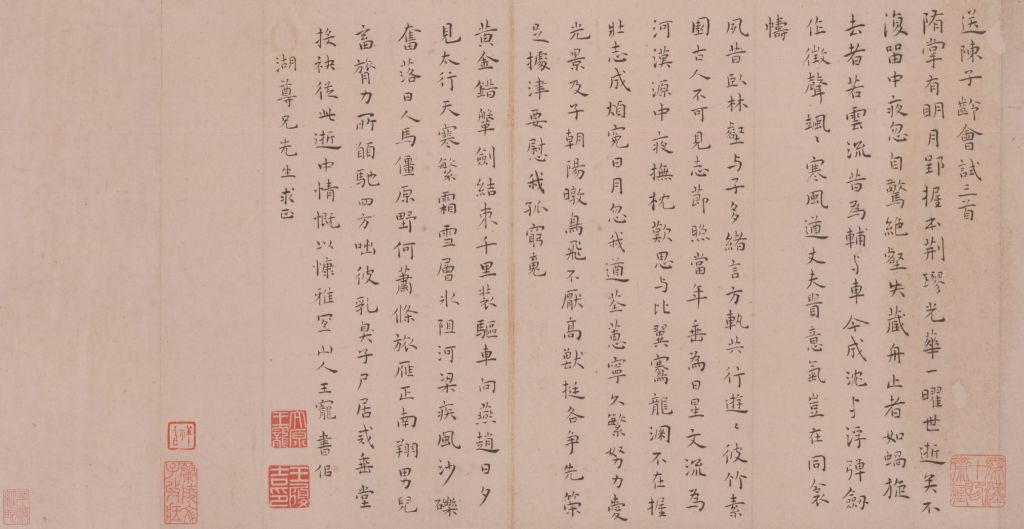 送陳子齡會試三首
隋掌有明月郢握本荆璆光華一曜世逝矣不
復留中夜忽自驚絶壑失藏舟止者如蝸旋
去者若雲流昔為輔与車今成沈与浮彈劒
作徵聲颯〻寒風遒丈夫貴意氣豈在同衾
幬
夙昔臥林壑与子多緒言方軌共行遊〻彼竹素
園古人不可見志節照當年垂為日星文流為
河漢源中夜撫枕歎思与比翼騫龍淵不在握
壯志成煩寃日月忽我遒荃蕙寧久繁努力愛
光景及子朝陽暾鳥飛不厭高獸挺各争先榮
足據津要慰我孤窮魂
黄金錯鞶劍結束千里装驅車向燕趙日夕
見太行天寒繁霜雪層冰阻河梁疾風沙礫
奮落日人馬僵原野何蕭條旅雁正南翔男兒
富膂力所願馳四方咄彼乳臭子尸居戒垂堂
挨袂從此逝中情慨以慷雅宜山人王寵書侣
湖尊兄先生求正
太原王寵
王履吉印